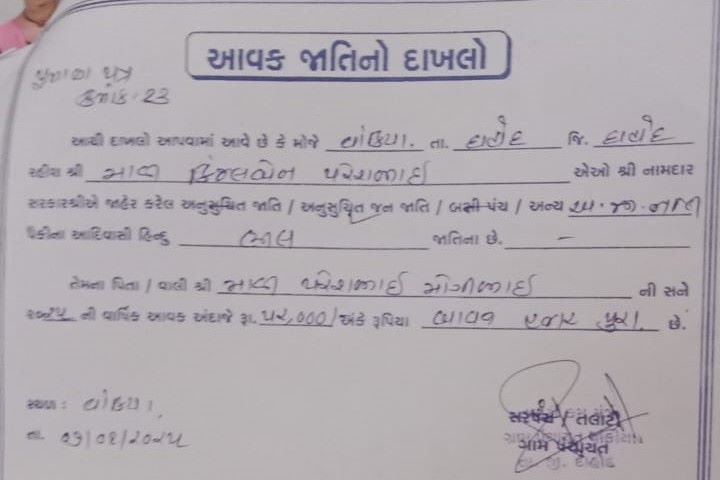 આવક જાતિનો દાખલો
પ્રમાણ પત્ર
ક્રમાંક-23
આથી દાખલો આપવામાં આવે છે કે મોજે વાંકિયા. તા. દાહોદ જિ. દાહોદ
રહીશ શ્રી માળી કિંજલબેન પરેશભાઈ એઓ શ્રી નામદાર
સરકારશ્રીએ જાહેર કરેલ અનુસુચિત જાતિ / અનુસુચિત જન જાતિ / બક્ષી પંચ / અન્ય અ.જ.જાતિ
પૈકીના આદિવાસી હિન્દુ ભીલ જાતિના છે. –
તેમના પિતા / વાલી શ્રી માળી પરેશભાઈ મોગીભાઈ ની સને
૨૦૨૫ ની વાર્ષિક આવક અંદાજે રૂા. ૫૨,૦૦૦/ અંકે રૂપિયા બાવન હજાર પુરા. છે.
સ્થળ : વાંકિયા.
તા. ૦૧/૦૨/૨૦૨૫
સરપંચ / તલાટી
ગ્રામ પંચાયત